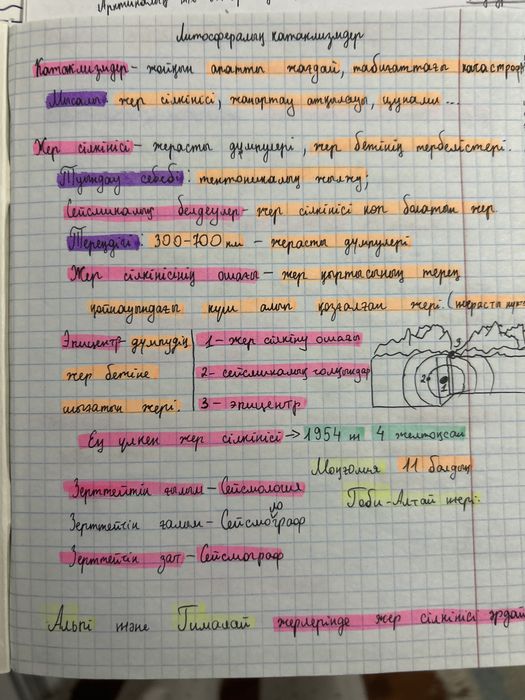 Арктикалық
Литосфералық катаклизмдер
Катаклизмдер - жойқын апатты жағдай, табиғаттағы катастроф
Мысалы: жер сілкінісі, жанартау атқылауы, цунами...
Жер сілкінісі - жерасты дүмпулері, жер бетінің тербелістері.
Туындау себебі: тектоникалық жылжу;
Сейсмикалық белдеулер - жер сілкінісі көп болатын жер.
Тереңдігі: 300-700 км - жерасты дүмпулері
Жер сілкінісінің ошағы - жер қыртысының терең
қойнауындағы күш алып қозғалған жері. (жерасты
Эпицентр дүмпудің
жер бетіне
шығатын жері.
1 - жер сілкіну ошағы
2 - сейсмикалық толқындар
3 - эпицентр
3
2
1
Ең үлкен жер сілкінісі → 1954 ж 4 желтоқсан
Моңғолия 11 балдық
Гоби-Алтай жері.
Зерттейтін ғылым - Сейсмология
Зерттейтін ғалым - Сейсмолограф
Зерттейтін зат - Сейсмограф
Альпі және Гималай жерлерінде жер сілкінісі әрдай